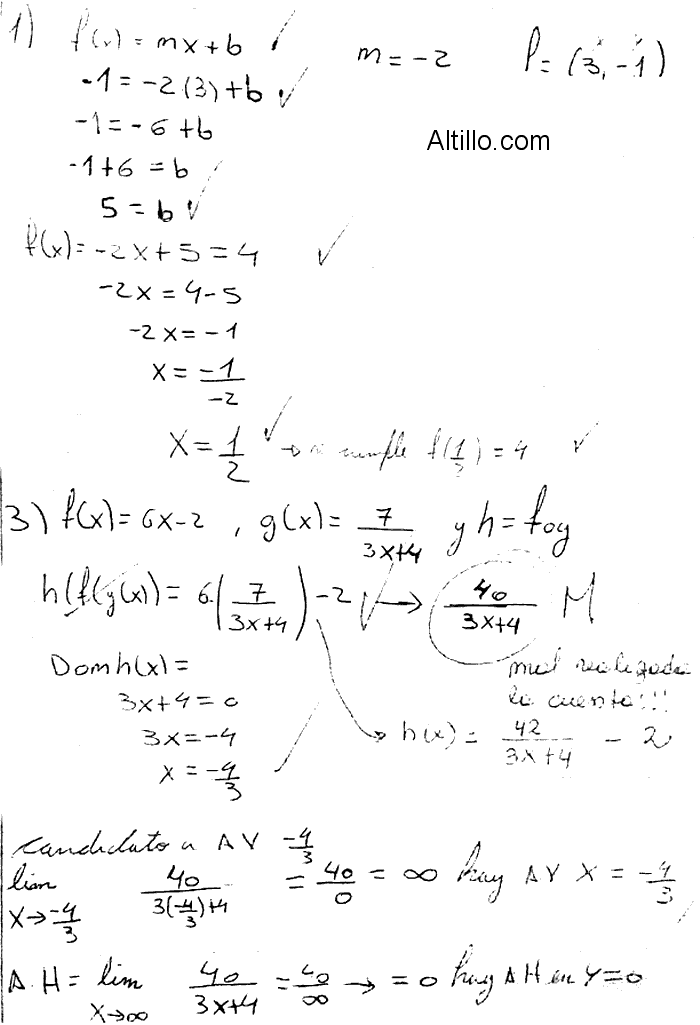 1) f(x) = mx + b ✓ m = -2 P = (3, -1)
-1 = -2(3) + b ✓
-1 = -6 + b
Altillo.com
-1 + 6 = b
5 = b ✓
f(x) = -2x + 5 = 4 ✓
-2x = 4 - 5
-2x = -1
x = -1/-2
x = 1/2 ✓ → se cumple f(1/2) = 4 ✓
3) f(x) = 6x - 2 , g(x) = 7/(3x+4) y h = fog
h(f(g(x)) = 6.(7/(3x+4)) - 2 ✓ → 40/(3x+4) M
Dom h(x) =
mal realizada
3x + 4 = 0
la cuenta!!!
3x = -4
→ h(x) = 42/(3x+4) - 2
x = -4/3 ✓
candidato a AV -4/3
lim x→-4/3 40/(3(-4/3)+4) = 40/0 = ∞ hay AV x = -4/3
A.H = lim x→∞ 40/(3x+4) = 40/∞ → = 0 hay AH en y = 0